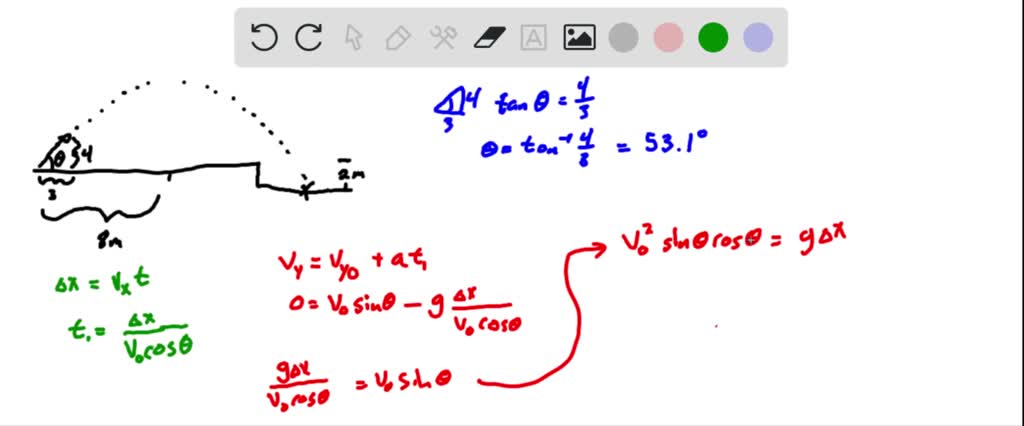 4 tan θ = 4/3
3
θ = tan⁻¹ 4/3 = 53.1°
θ 4
3
2m
8m
Δx = Vₓ t
t₁ = Δx / V₀cosθ
V_y = V_y0 + at₁
0 = V₀ sinθ − g Δx / V₀ cosθ
gΔx / V₀ cosθ = V₀ sinθ
V₀² sinθ cosθ = gΔx